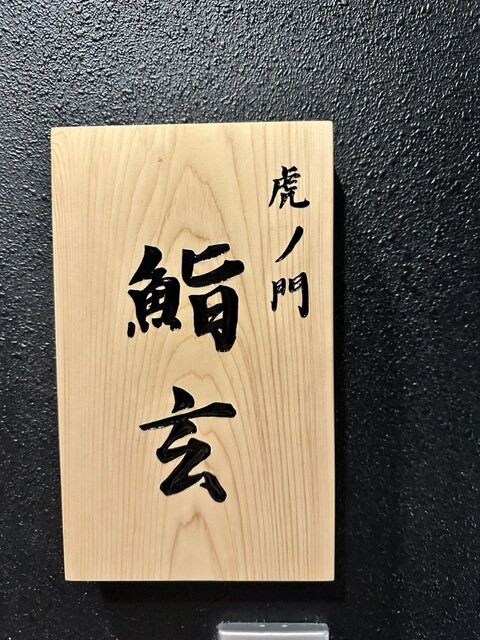 虎ノ門
鮨玄